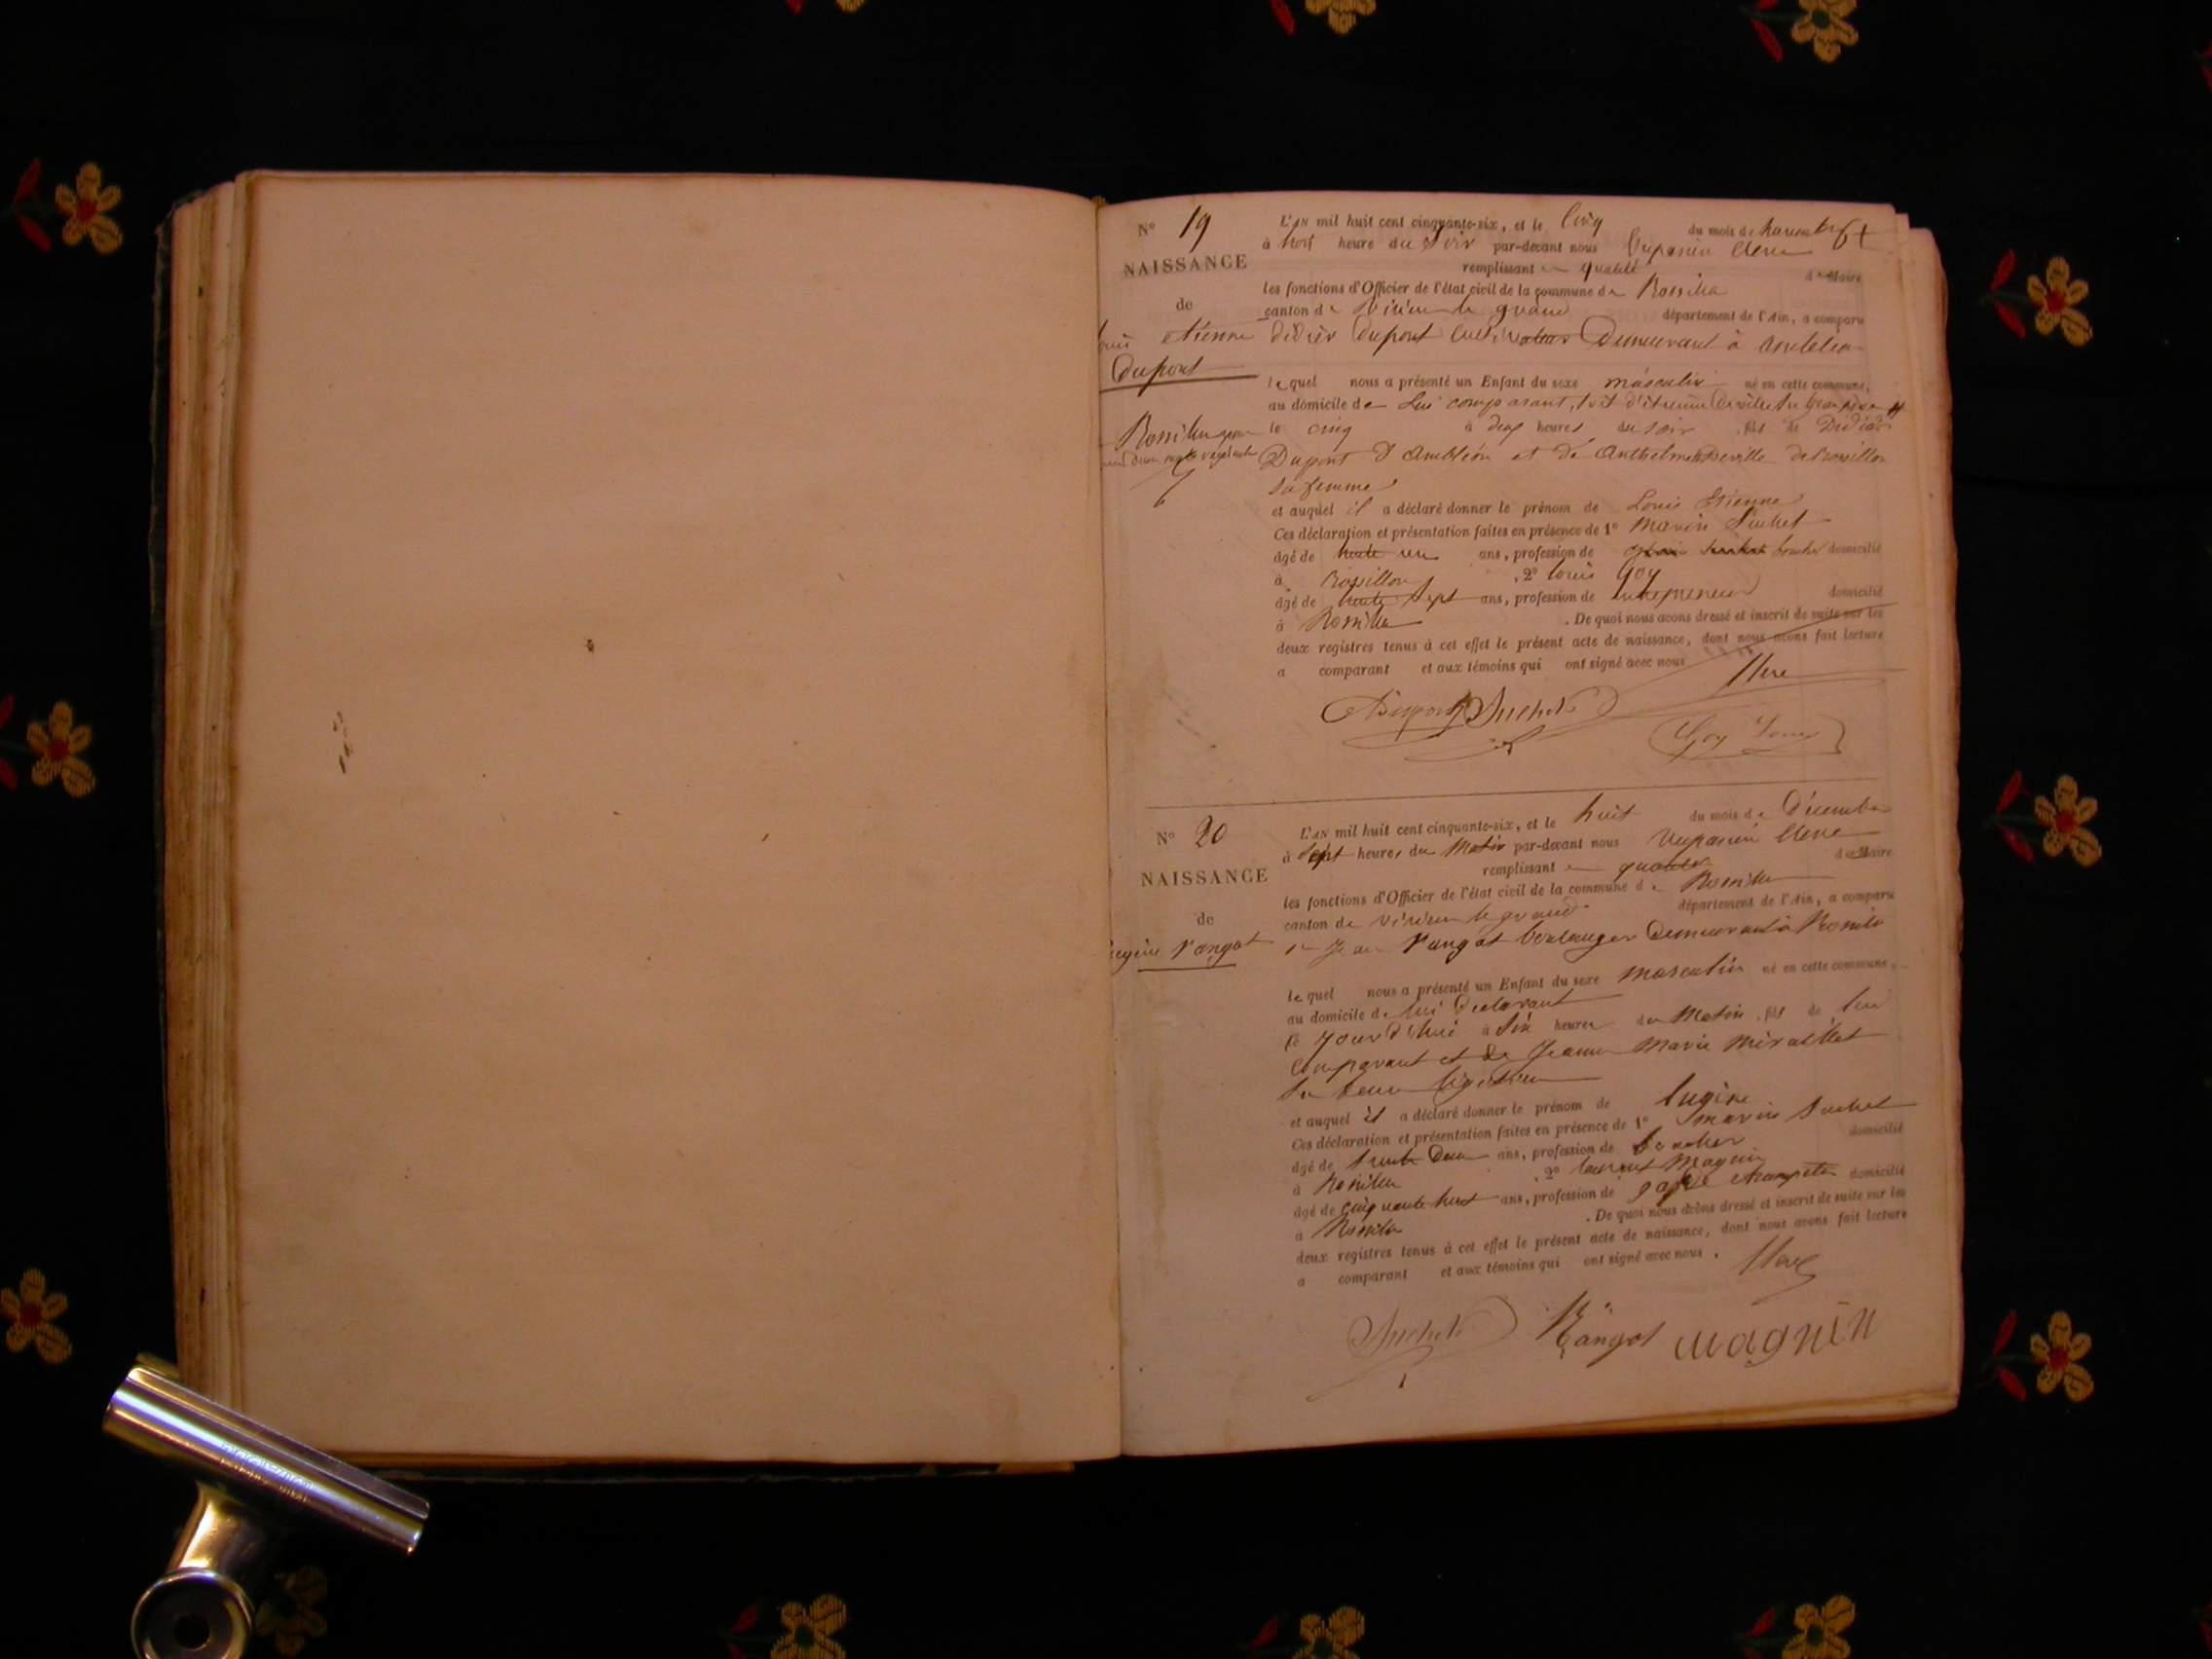 N° 19
NAISSANCE
de
étienne
Dupont
L'AN mil huit cent cinquante-six, et le cinq du mois de
à trois heure du soir par-devant nous
remplissant en qualité de Maire
les fonctions d'Officier de l'état civil de la commune de Rossillon
canton de virieu le grand département de l'Ain, a comparu
didier Dupont cultivateur Demeurant à
lequel nous a présenté un Enfant du sexe masculin né en cette commune,
au domicile de Lui comparant,
le cinq à deux heures du soir, fils de Didier
Dupont d'Ambléon et de Anthelmette Deville de Rossillon
sa femme
et auquel il a déclaré donner le prénom de Louis Etienne
Ces déclaration et présentation faites en présence de 1° Marin Suchet
âgé de trente un ans, profession de boucher domicilié
à Rossillon, 2° louis Goy
âgé de trente sept ans, profession de entrepreneur domicilié
à Rossillon. De quoi nous avons dressé et inscrit de suite sur les
deux registres tenus à cet effet le présent acte de naissance, dont nous avons fait lecture
a comparant et aux témoins qui ont signé avec nous
Dupont Suchet
Goy Louis
N° 20
NAISSANCE
de
Rangot
L'AN mil huit cent cinquante-six, et le huit du mois de Décembre
à sept heures du Matin par-devant nous
remplissant en qualité de Maire
les fonctions d'Officier de l'état civil de la commune de Rossillon
canton de virieu le grand département de l'Ain, a comparu
Jean Rangot boulanger Demeurant à Rossillon
lequel nous a présenté un Enfant du sexe masculin né en cette commune,
au domicile de lui Déclarant
le jourd'hui à six heures du Matin, fils de lui
Comparant et de Jeanne Marie
et auquel il a déclaré donner le prénom de Eugène
Ces déclaration et présentation faites en présence de 1° Marin Suchet
âgé de trente Deux ans, profession de boucher domicilié
à Rossillon 2° laurent Magnin
âgé de cinquante huit ans, profession de garde champêtre domicilié
à Rossillon. De quoi nous avons dressé et inscrit de suite sur les
deux registres tenus à cet effet le présent acte de naissance, dont nous avons fait lecture
a comparant et aux témoins qui ont signé avec nous.
Suchet Rangot magnin